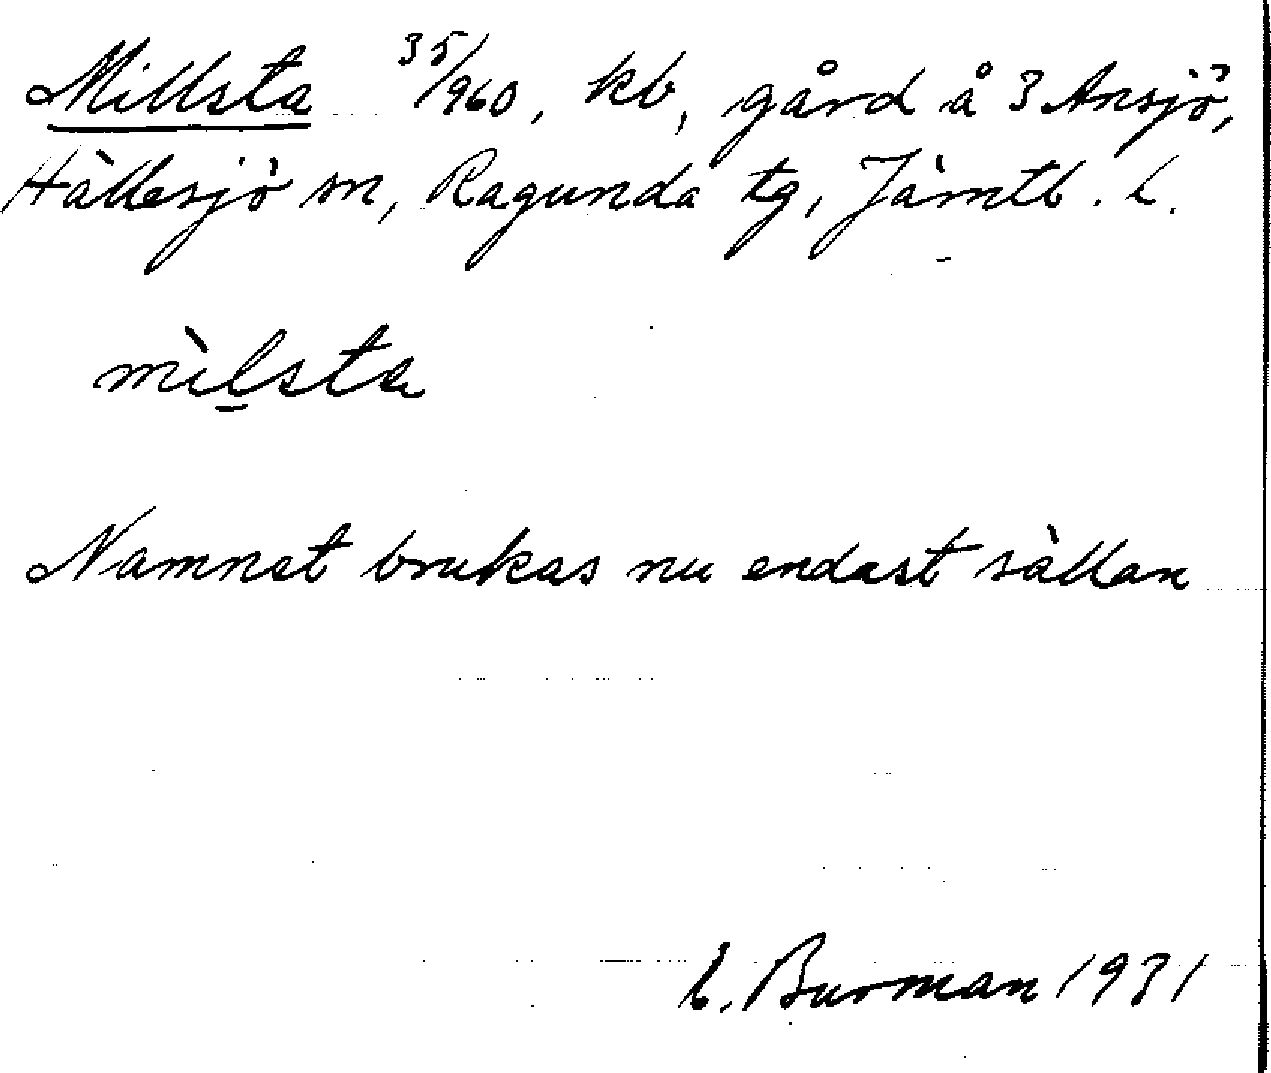 Millsta 35/960, kb, gård å 3 Ansjö,
Hällesjö sn, Ragunda tg, Jämtl. l.
mìl̠sta
Namnet brukas nu endast sällan
E. Burman 1931